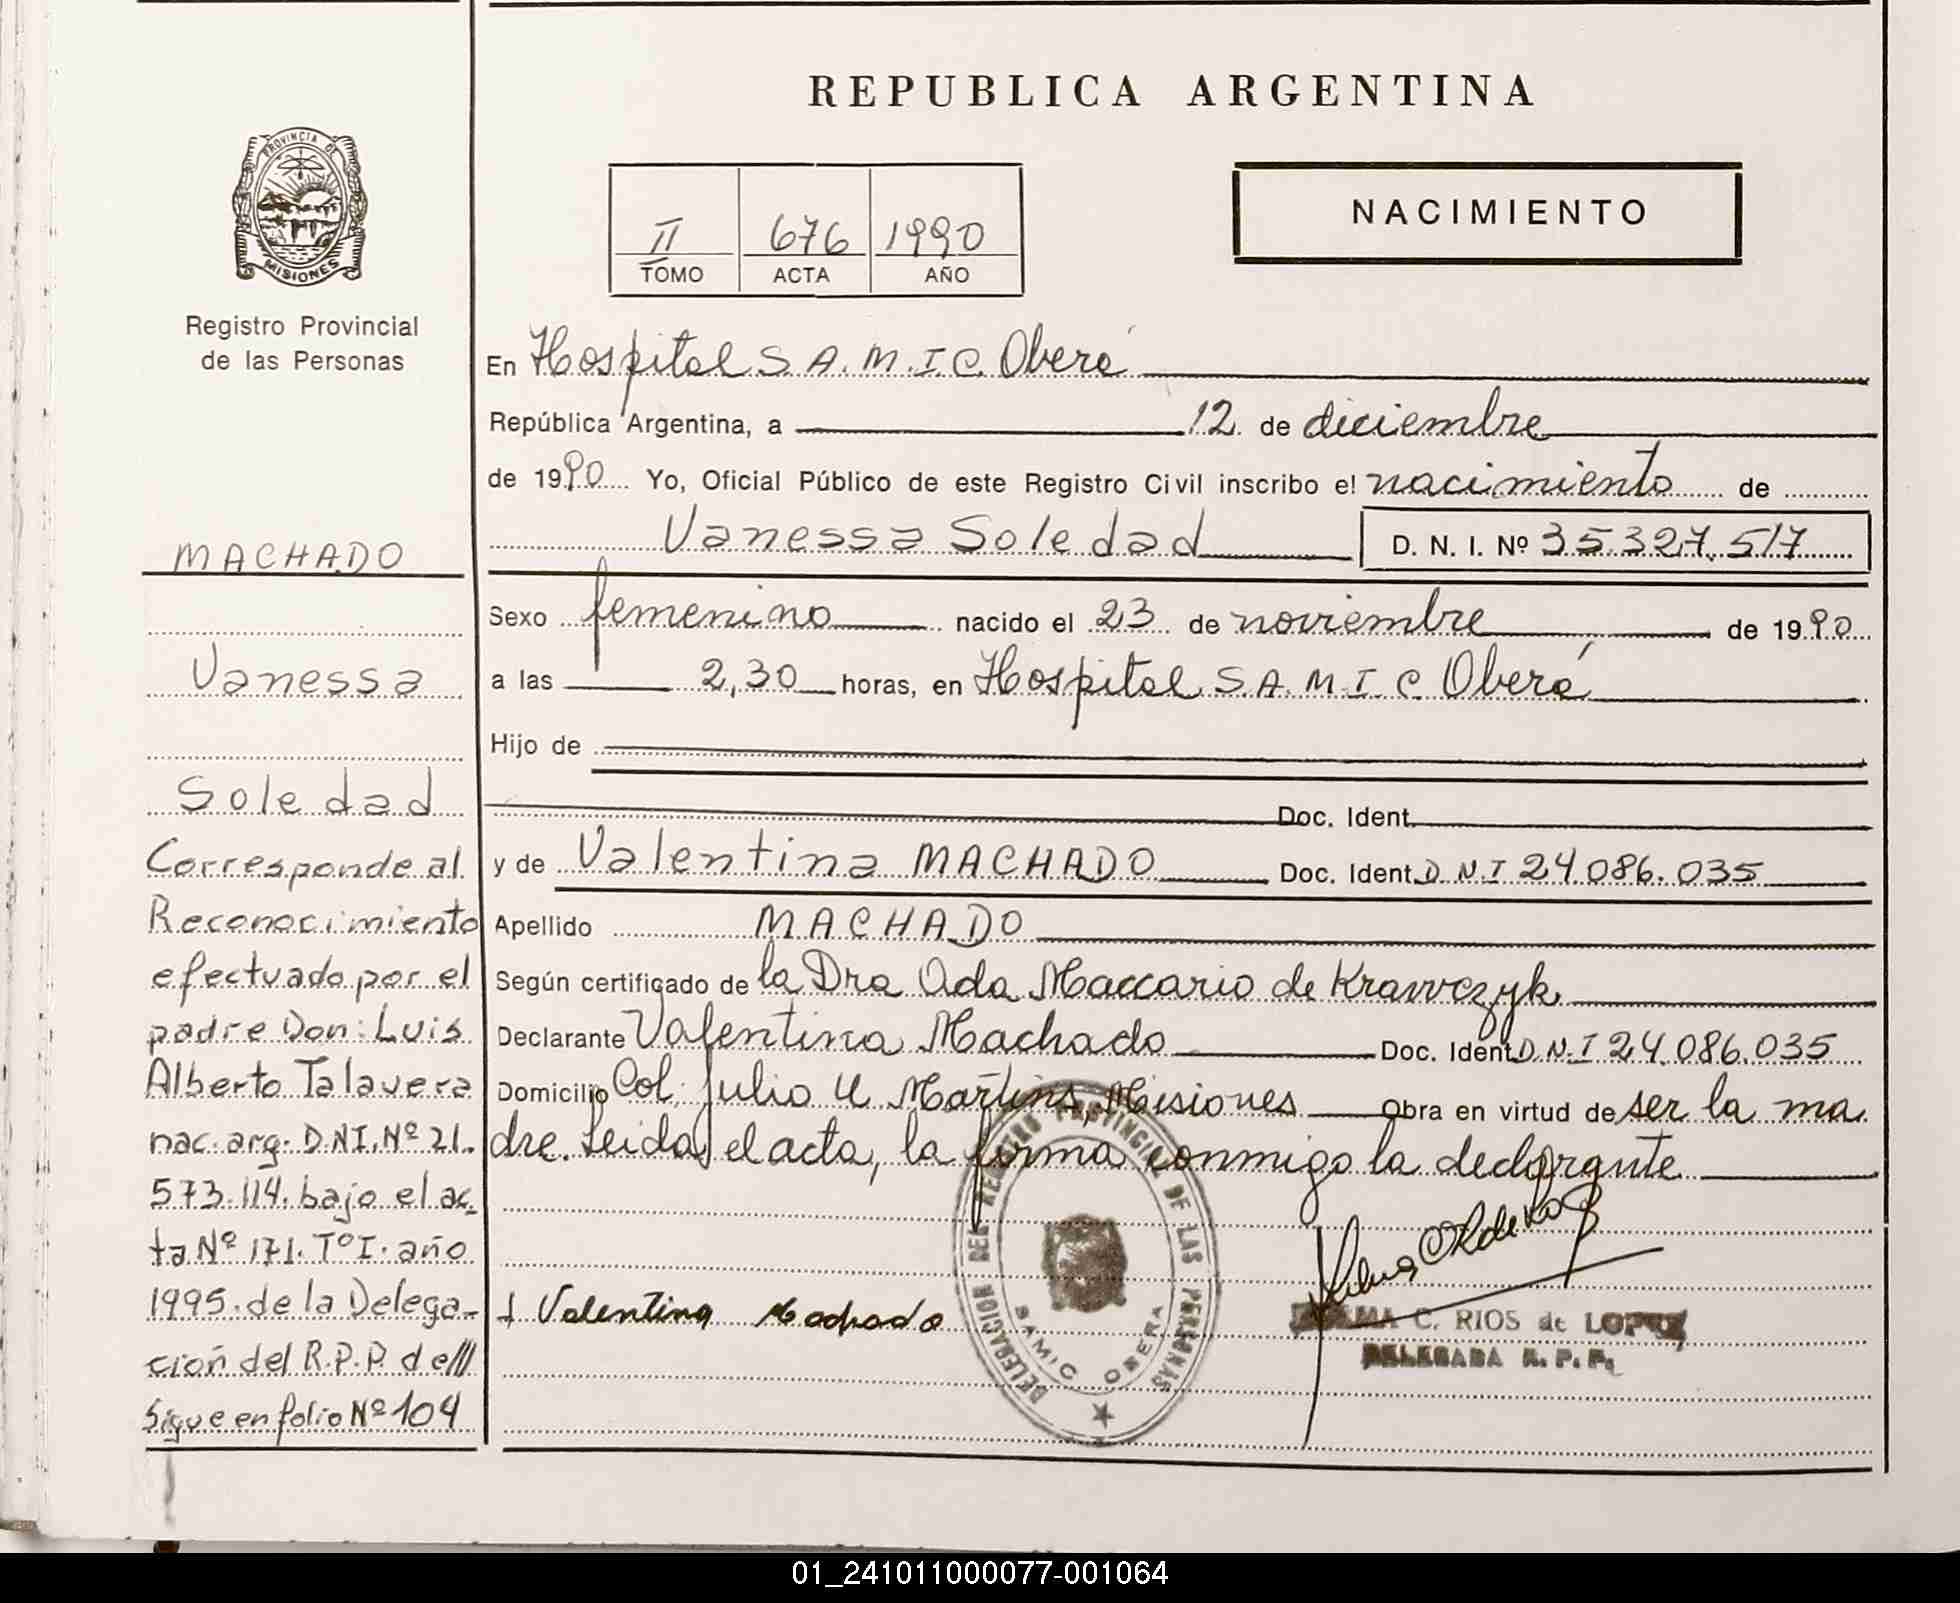 REPUBLICA ARGENTINA
PROVINCIA DE
MISIONES
Registro Provincial
de las Personas
II 676 1990
TOMO ACTA AÑO
NACIMIENTO
En Hospital S.A.M.I.C. Oberá
República Argentina, a 12 de diciembre
de 1990 Yo, Oficial Público de este Registro Civil inscribo el nacimiento de
Vanessa Soledad D. N. I. Nº 35.327.517
Sexo femenino nacido el 23 de noviembre de 1990
a las 2,30 horas, en Hospital S.A.M.I.C. Oberá
Hijo de
Doc. Ident.
y de Valentina MACHADO Doc. Ident. D.N.I 24.086.035
Apellido MACHADO
Según certificado de la Dra Ada Maccario de Krawczyk
Declarante Valentina Machado Doc. Ident. D.N.I 24.086.035
Domicilio Col. Julio U. Martins, Misiones Obra en virtud de ser la ma
dre. Leida el acta, la firma conmigo la declarante
Valentina Machado
DELEGACION DEL REGISTRO PROVINCIAL DE LAS PERSONAS
SAMIC OBERA
C. RIOS de LOPEZ
DELEGADA R. P. P.
MACHADO
Vanessa
Soledad
Corresponde al
Reconocimiento
efectuado por el
padre Don: Luis
Alberto Talavera
nac. arg. D.N.I. Nº 21.
573.114. bajo el ac-
ta Nº 171. Tº I. año
1995. de la Delega-
ción del R.P.P. de
Sigue en folio Nº 104
01_241011000077-001064